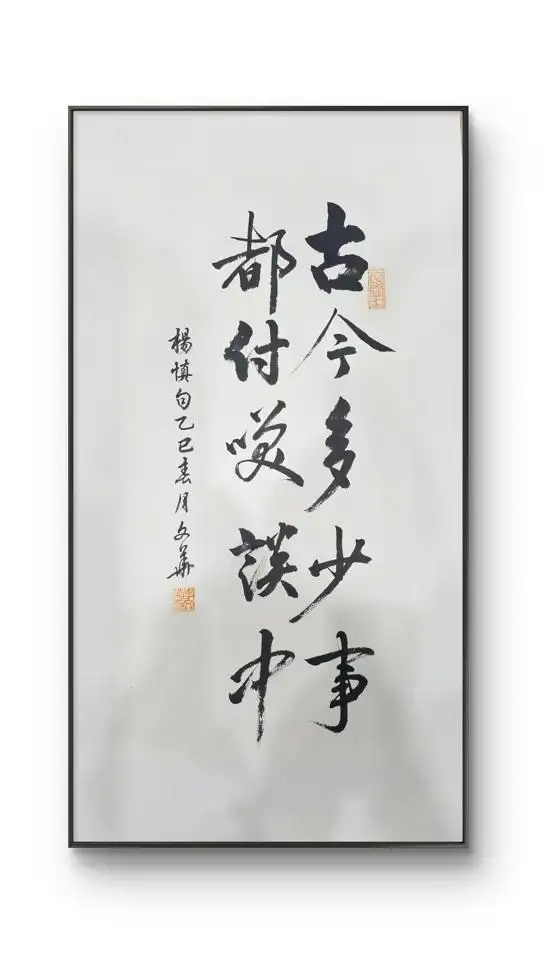 古今多少事
都付笑談中
楊慎句乙巳春月文華